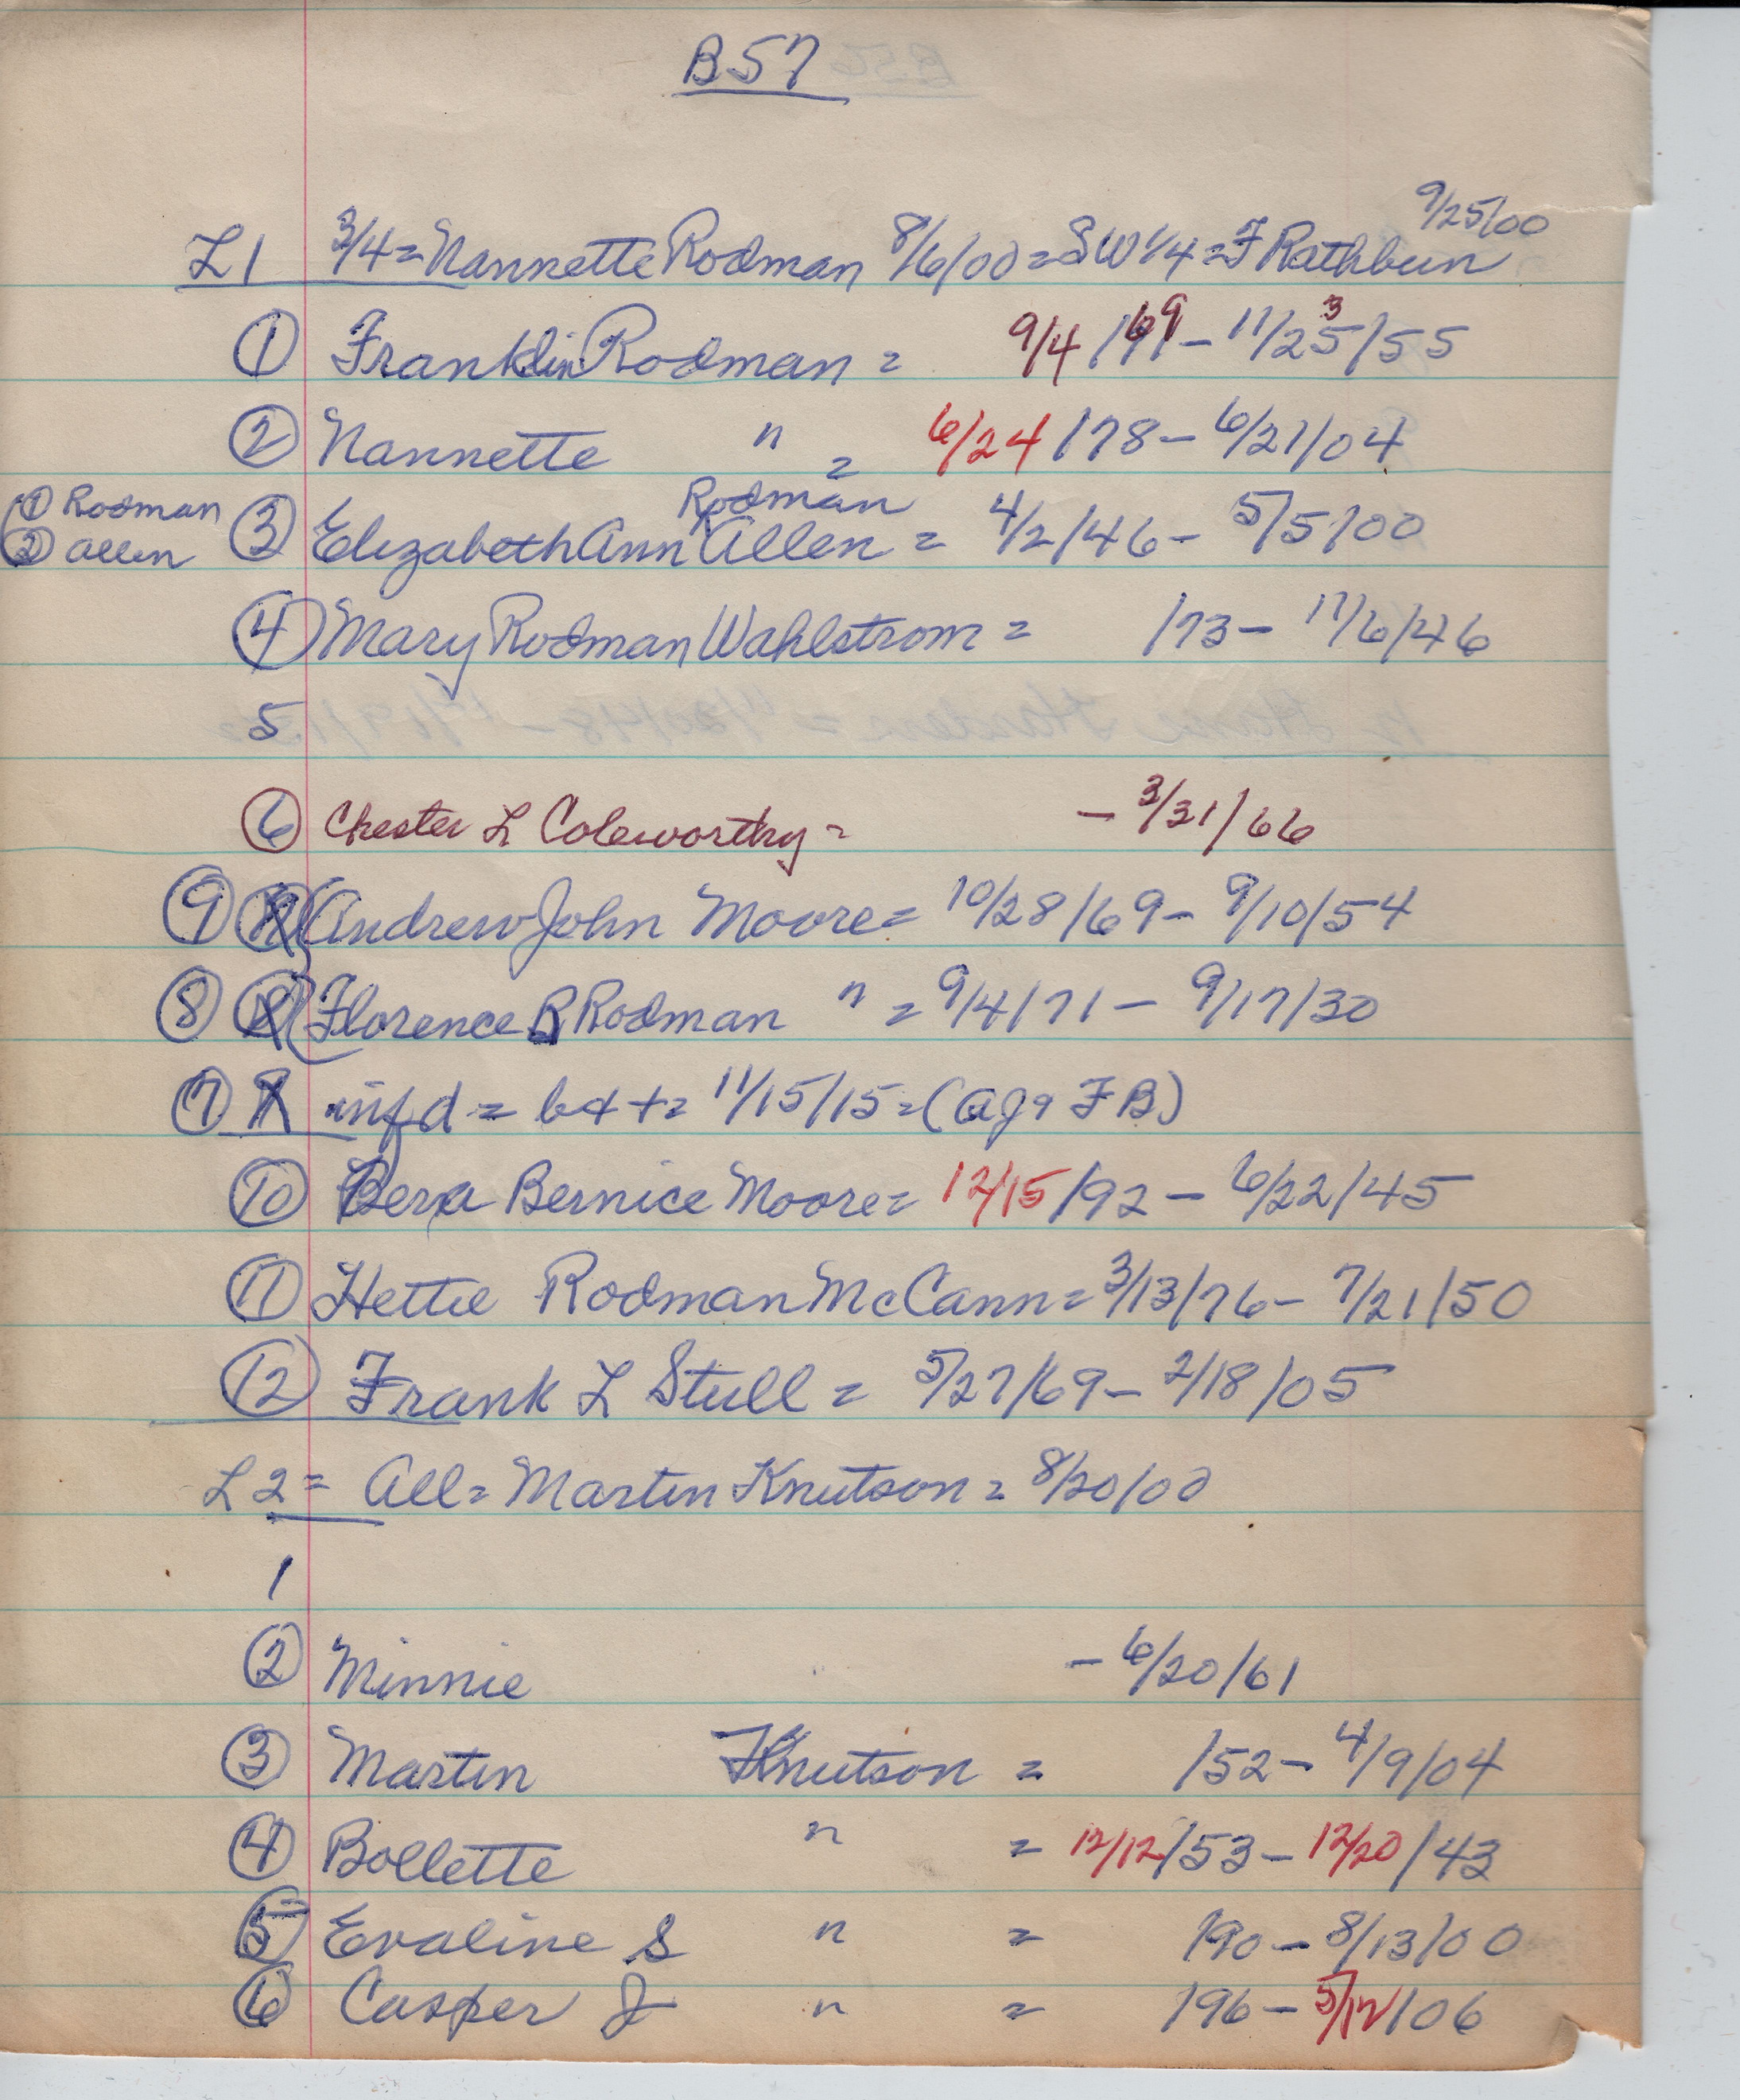 B57
9/25/00
L1 3/4 = Nannette Rodman 8/6/00 = SW 1/4 = F Rathbun
① Franklin Rodman = 9/4 / 69 - 11/23/55
② Nannette " = 6/24 /78 - 6/21/04
① Rodman
② Allen
Rodman
③ Elizabeth Ann Allen = 4/2/46 - 5/5/00
④ Mary Rodman Wahlstrom = /73 - 11/6/46
5
⑥ Chester L Coleworthy = - 3/31/66
⑨ Andrew John Moore = 10/28/69 - 9/10/54
⑧ Florence B Rodman " = 9/4/71 - 9/17/30
⑦ inf d = b & + = 11/15/15 = (AJ & FB)
⑩ Bernice Moore = 12/15 /92 - 6/22/45
⑪ Hettie Rodman McCann = 3/13/76 - 7/21/50
⑫ Frank L Stull = 5/27/69 - 2/18/05
L2 = All = Martin Knutson = 8/20/00
1
② Minnie - 6/20/61
③ Martin Knutson = /52 - 4/9/04
④ Bollette " = 12/12/53 - 12/20/43
⑤ Evaline S " = /90 - 8/13/00
⑥ Casper J " = /96 - 5/12/06